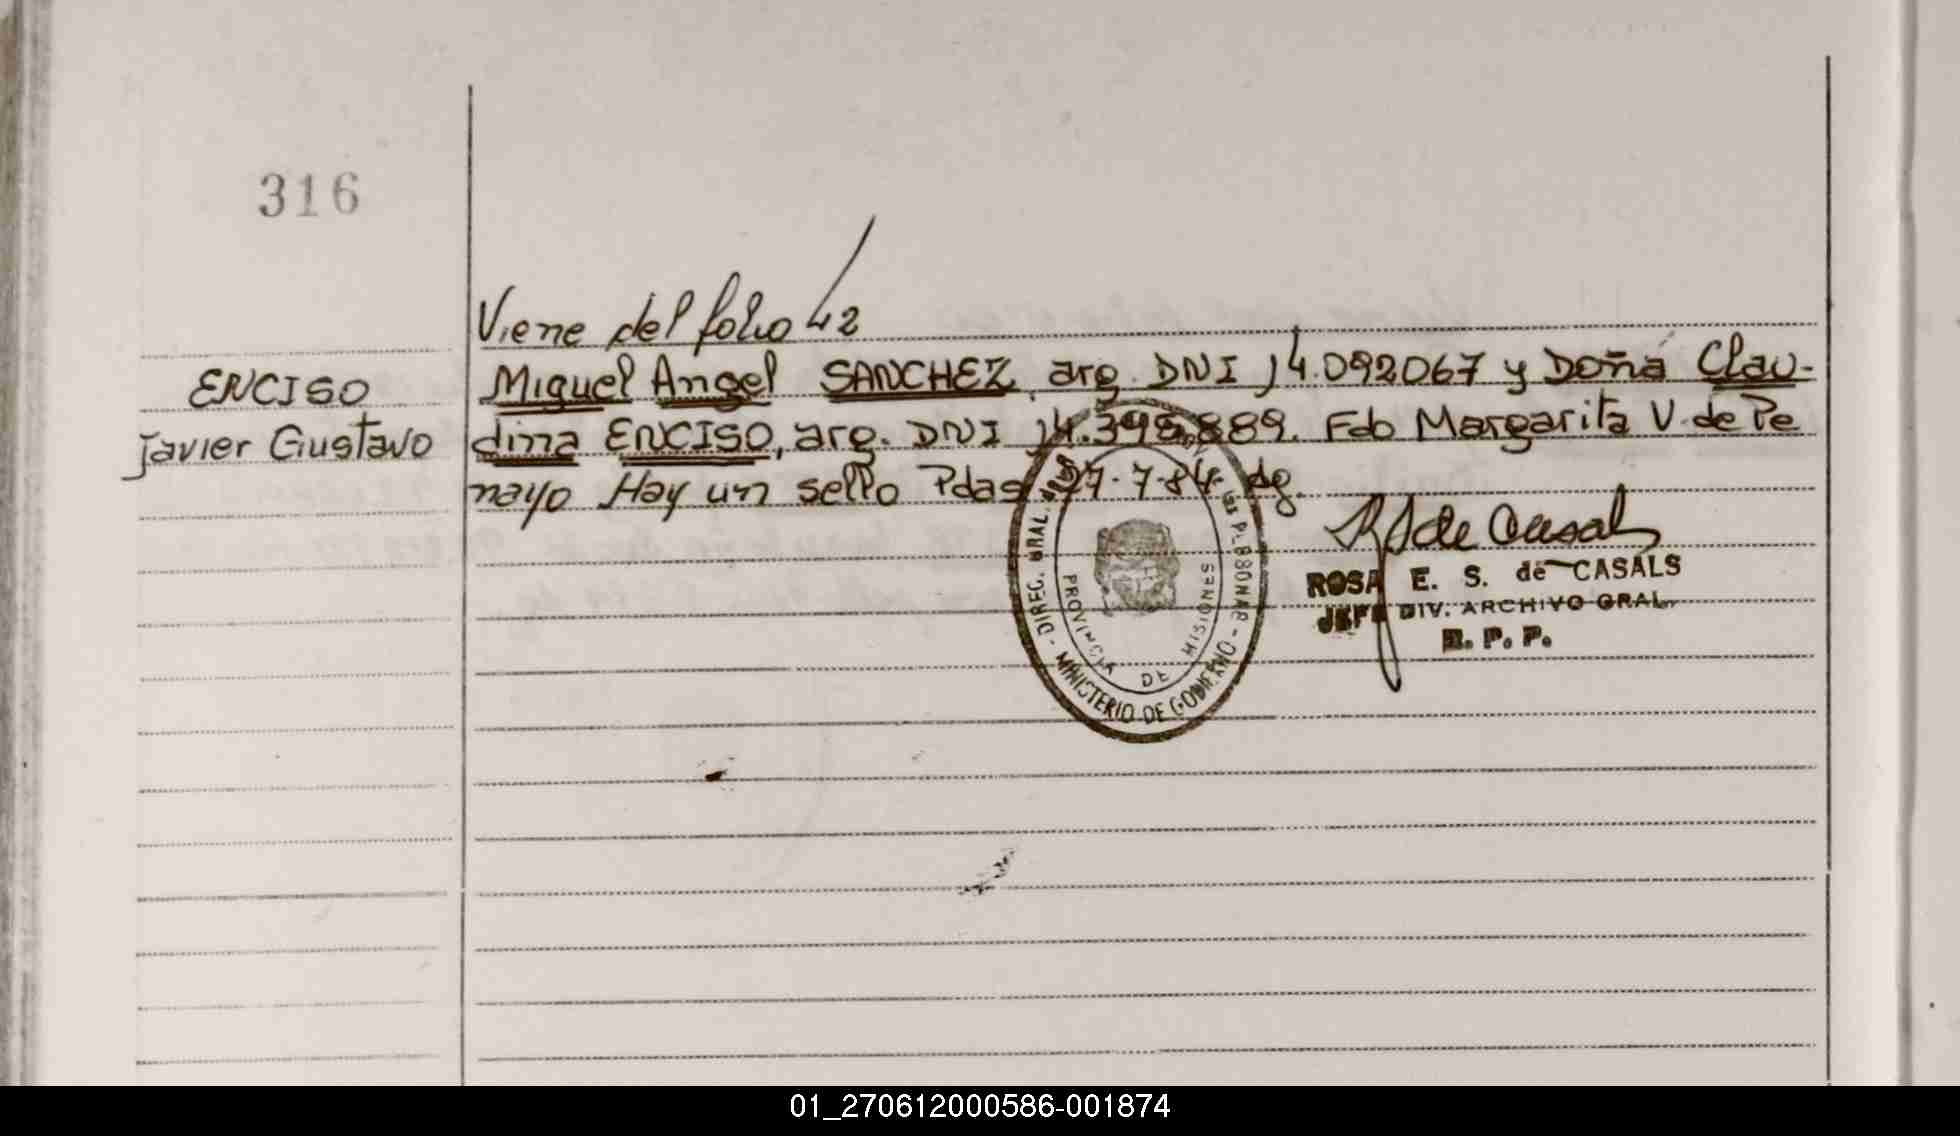 316
Viene del folio 42
ENCISO
Javier Gustavo
Miguel Angel SANCHEZ, arg. DNI 14.092067 y Doña Clau-
dina ENCISO, arg. DNI 14.398.889. Fdo Margarita V. de Pe
nayo Hay un sello Pdas 27-7-84 dg.
R S de Casals
ROSA E. S. de CASALS
JEFE DIV. ARCHIVO GRAL.
R. P. P.
DIREC. GRAL.
MINISTERIO DE GOBIERNO
PROVINCIA DE MISIONES
01_270612000586-001874